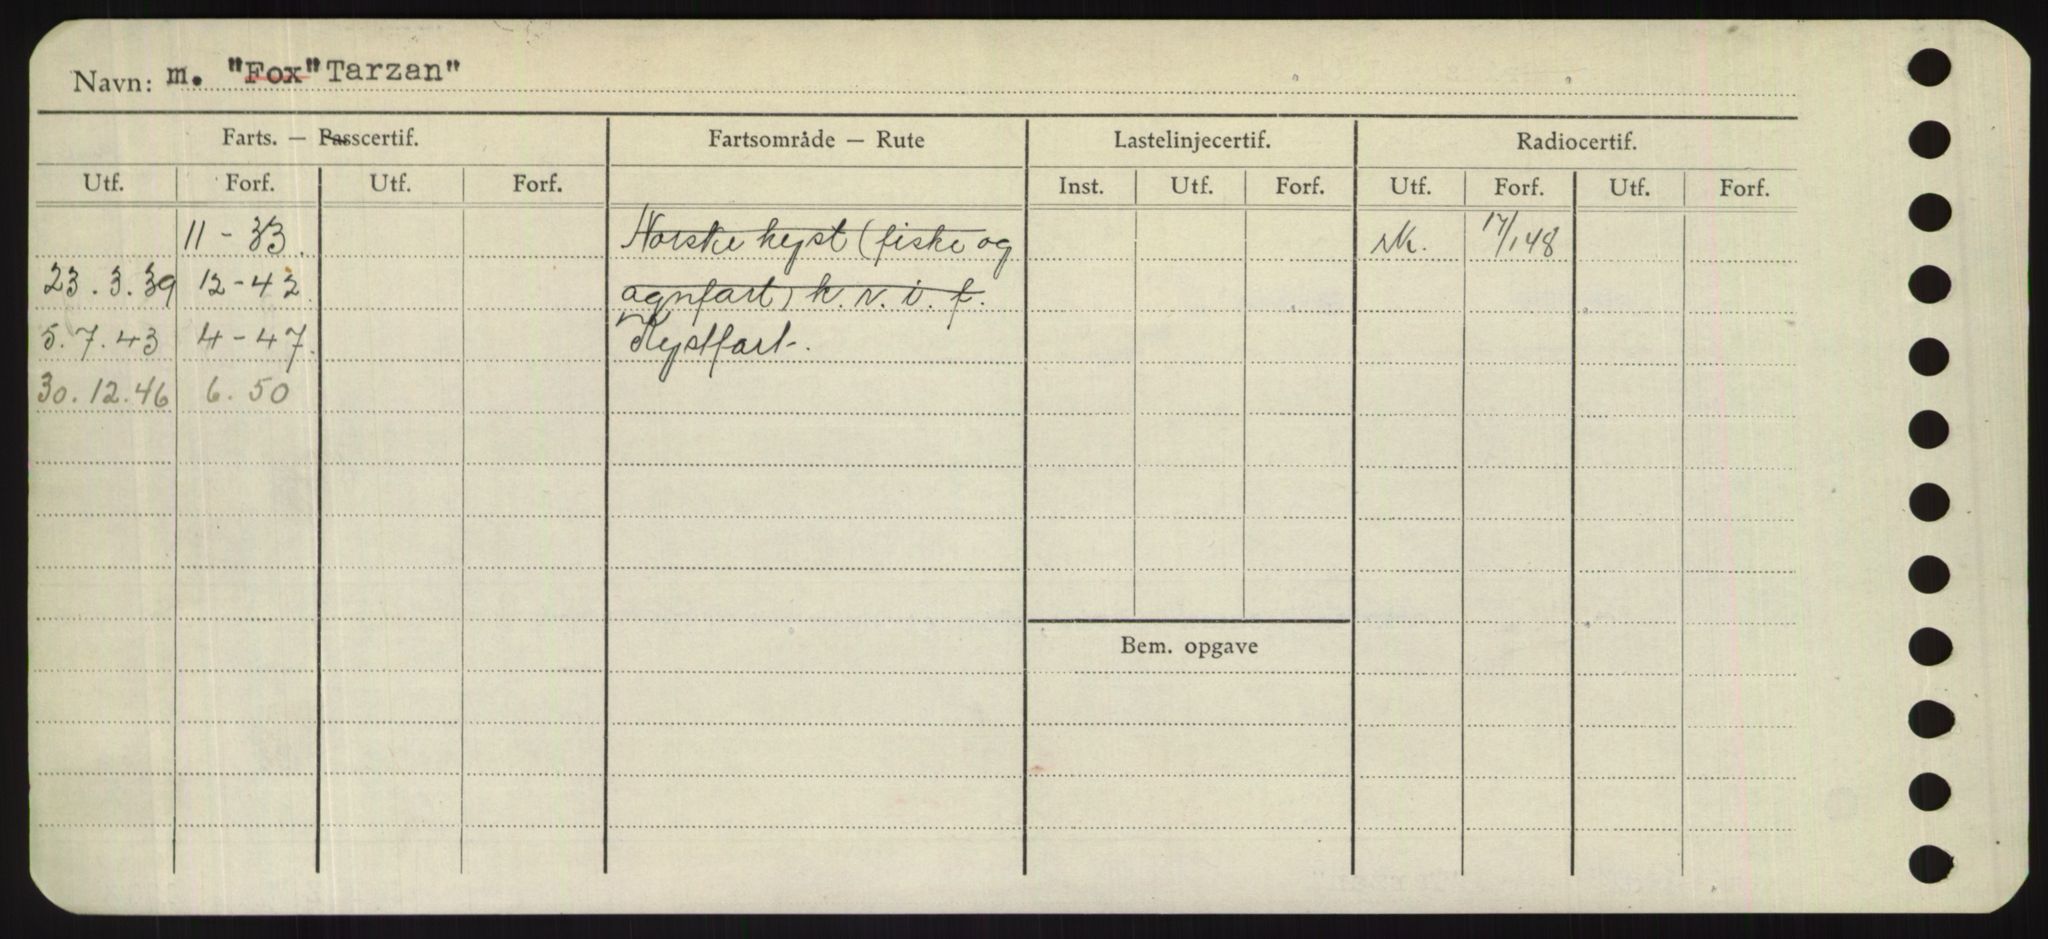 Navn: m. "Fox" Tarzan"
Farts. — Passcertif. Fartsområde — Rute Lastelinjecertif. Radiocertif.
Utf. Forf. Utf. Forf. Inst. Utf. Forf. Utf. Forf. Utf. Forf.
11 - 33. Norske kyst (fiske og 17/1 48
23.3.39 12-42 agnfart) k.v.i.f.
5.7.43 4-47. Kystfart.
30.12.46 6.50
Bem. opgave